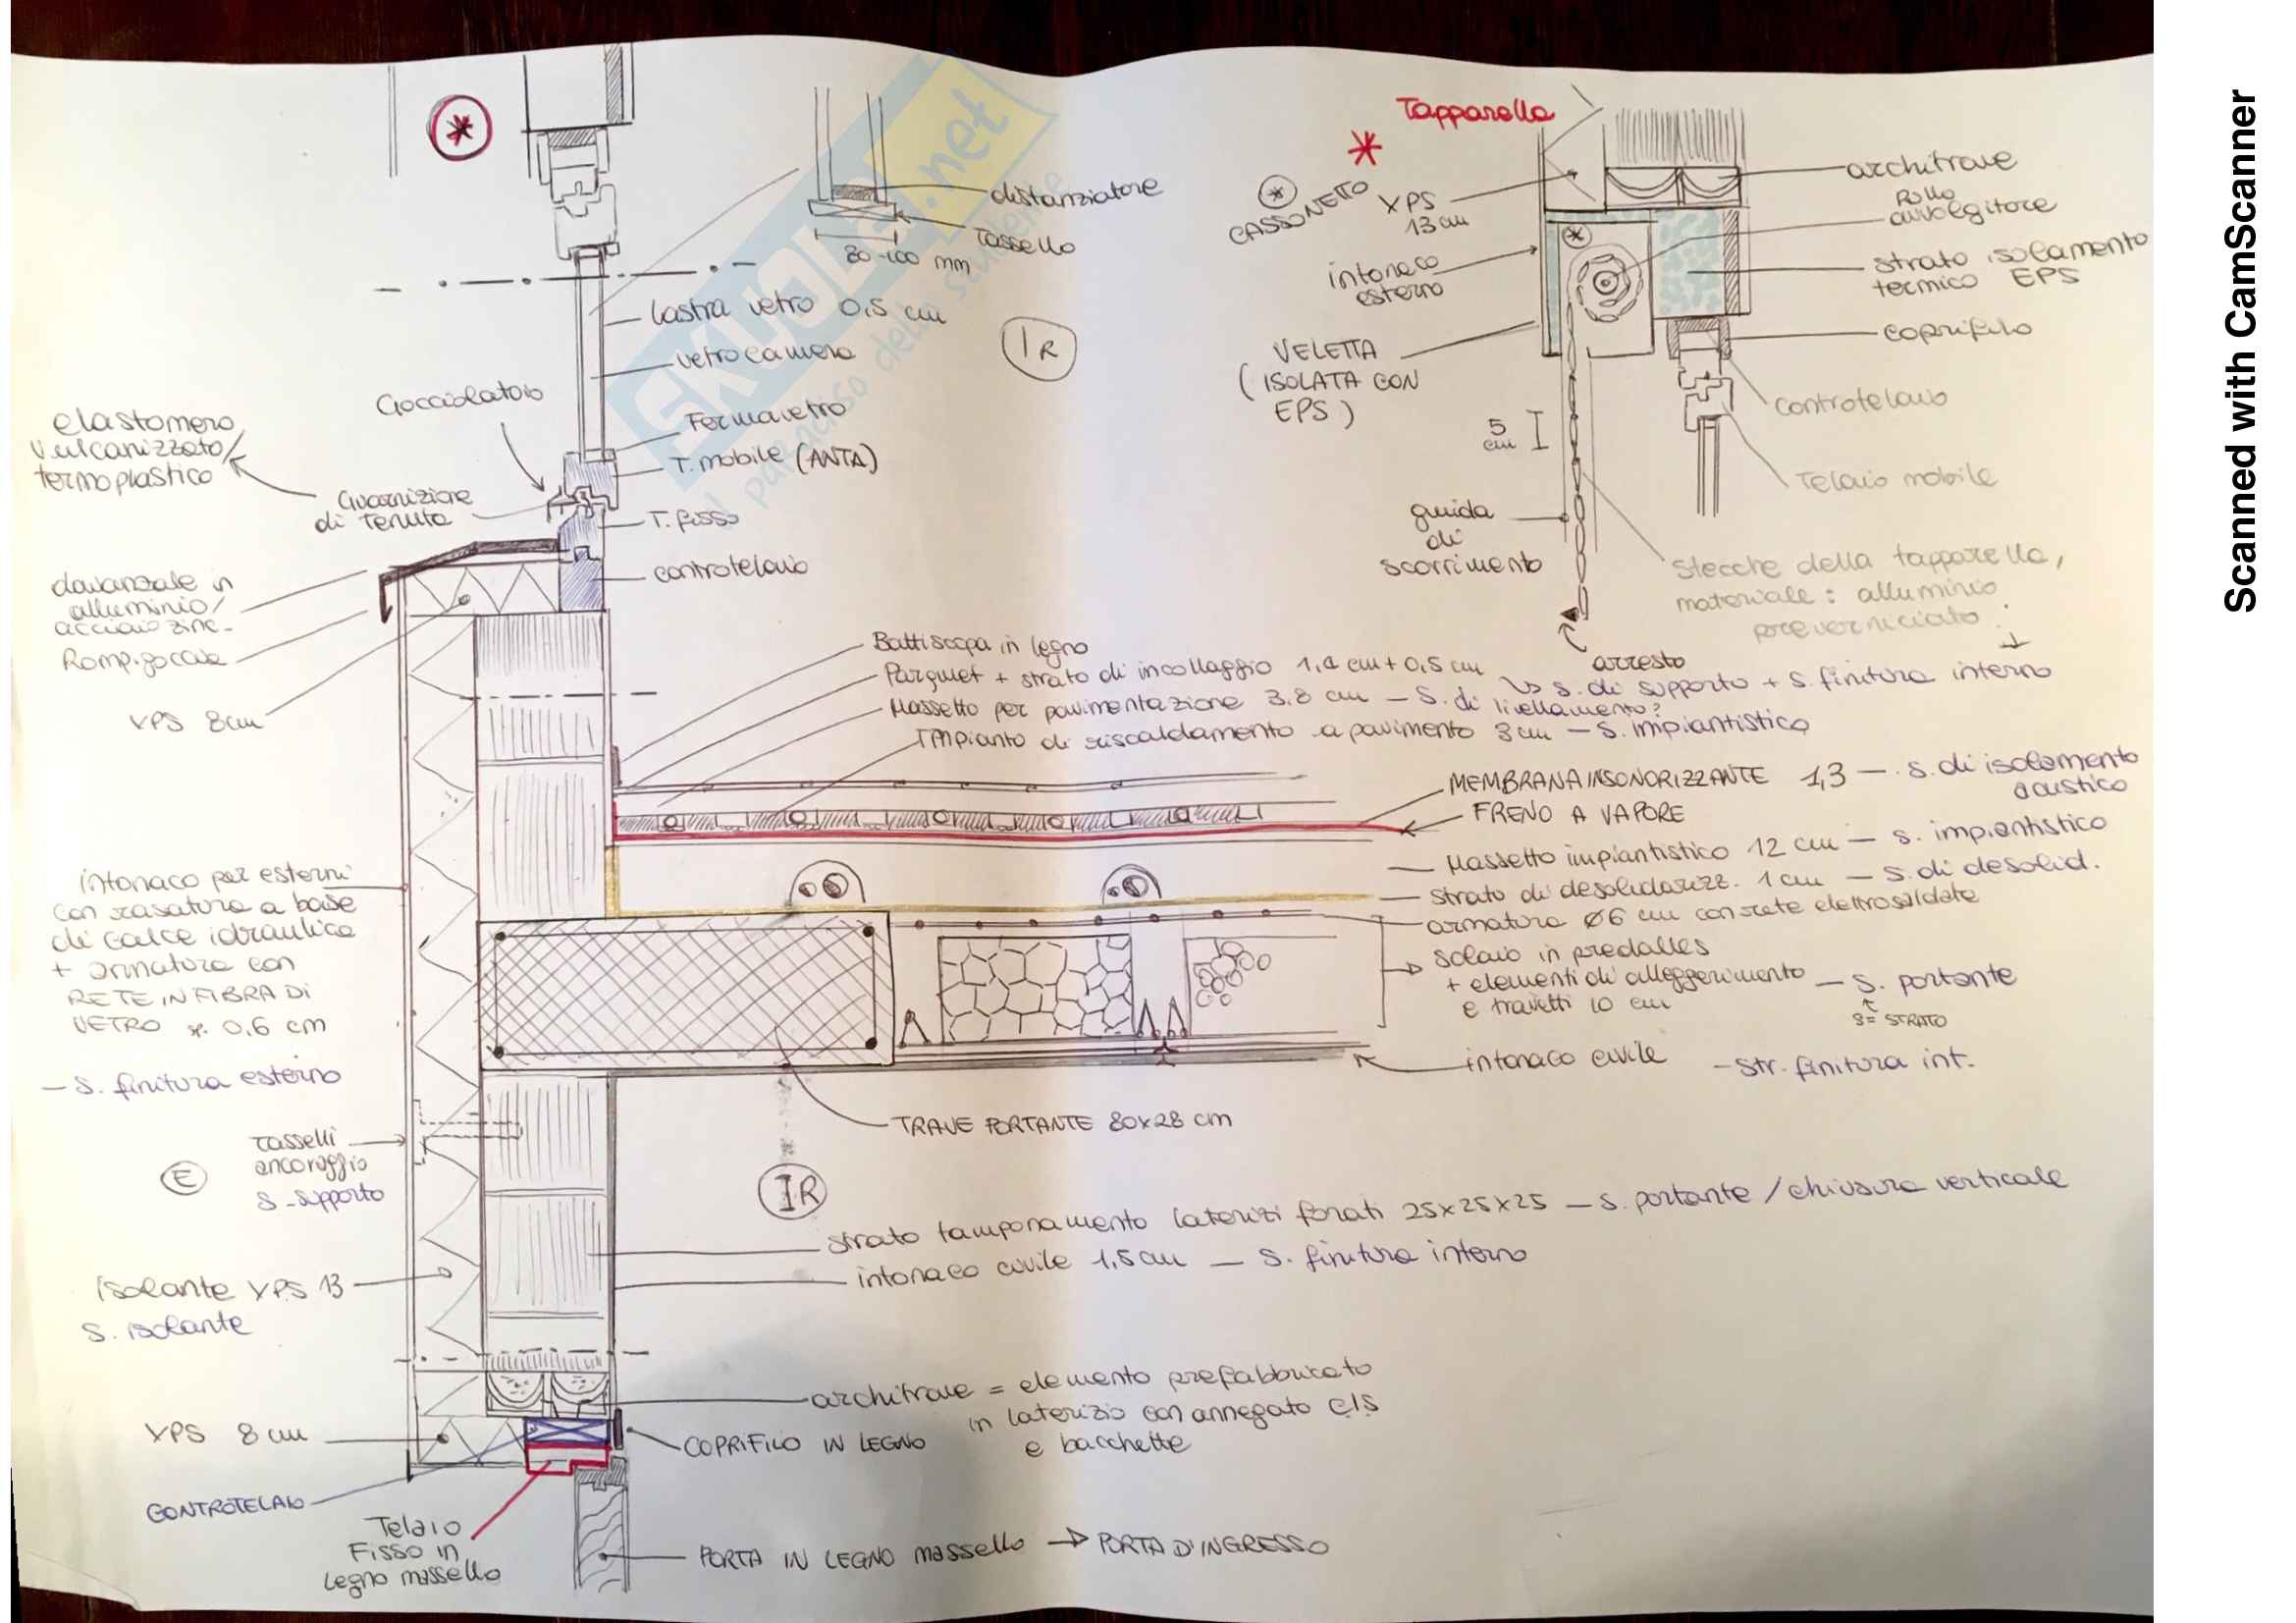 Tapparella
*
*
* CASSONETTO
XPS
13 cm
architrave
Rullo
avvolgitore
strato isolamento
termico EPS
intonaco
esterno
VELETTA
(ISOLATA CON
EPS)
coprifilo
controtelaio
Telaio mobile
5
cm
guida
di
scorrimento
stecche della tapparella,
materiale: alluminio
preverniciato.
arresto
distanziatore
Tassello
80-100 mm
lastra vetro 0,5 cm
vetrocamera
IR
Gocciolatoio
Fermavetro
T. mobile (ANTA)
elastomero
vulcanizzato/
termoplastico
Guarnizione
di Tenuta
T. fisso
controtelaio
davanzale in
alluminio/
acciaio zinc.
Rompigoccia
XPS 8cm
Battiscopa in legno
Parquet + strato di incollaggio 1,4 cm + 0,5 cm
s. di supporto + s. finitura interno
Massetto per pavimentazione 3,8 cm — S. di livellamento?
Impianto di riscaldamento a pavimento 3 cm — S. impiantistico
MEMBRANA INSONORIZZANTE 1,3 — s. di isolamento
acustico
FRENO A VAPORE
Massetto impiantistico 12 cm — s. impiantistico
strato di desolidarizz. 1 cm — s. di desolid.
armatura Ø6 cm con rete elettrosaldata
solaio in predalles
+ elementi di alleggerimento — S. portante
e travetti 10 cm
S = STRATO
intonaco civile — str. finitura int.
intonaco per esterni
con rasatura a base
di calce idraulica
+ armatura con
RETE IN FIBRA DI
VETRO 0,6 cm
— S. finitura esterno
TRAVE PORTANTE 80x28 cm
tasselli
ancoraggio
S. supporto
E
IR
strato tamponamento laterizi forati 25x25x25 — S. portante / chiusura verticale
intonaco civile 1,5 cm — S. finitura interno
isolante XPS 13
S. isolante
architrave = elemento prefabbricato
in laterizio con annegato cls
e bacchette
XPS 8 cm
COPRIFILO IN LEGNO
CONTROTELAIO
Telaio
Fisso in
Legno massello
PORTA IN LEGNO massello → PORTA D'INGRESSO
SKUOLA.net
il paradiso dello studente
Scanned with CamScanner